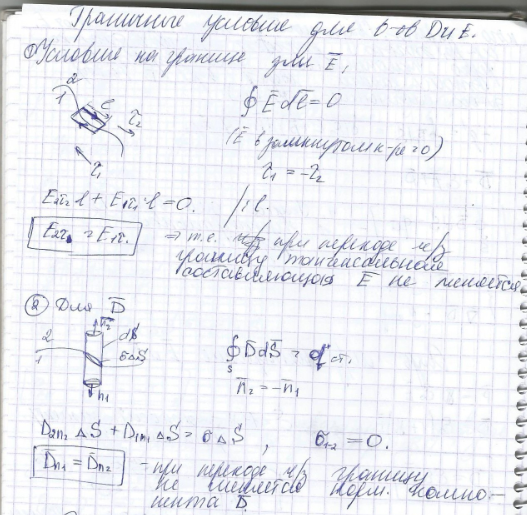 Граничные условие для в-ов D и E.
① Условие на границе для E̅,
2
1
ℓ
τ₂
τ₁
∮ E̅ dℓ̅ = 0
(E̅ в замкнутом к-ре = 0)
τ₁ = -τ₂
E₂τ₂ ℓ + E₁τ₁ ℓ = 0. / : ℓ.
E₂τ = E₁τ. ⇒ т.е. при переходе ч/з
границу тангенсальная
составляющая E̅ не меняется
② Для D̅
n̅₂
dS
2
1
σΔS
n₁
∮ D̅ dS̅ = q ст.
S
n̅₂ = -n̅₁
D₂n₂ ΔS + D₁n₁ ΔS = σ ΔS , σ₁₋₂ = 0.
Dn₁ = Dn₂ - при переходе ч/з границу
не меняется норм. компо-
нента D̅